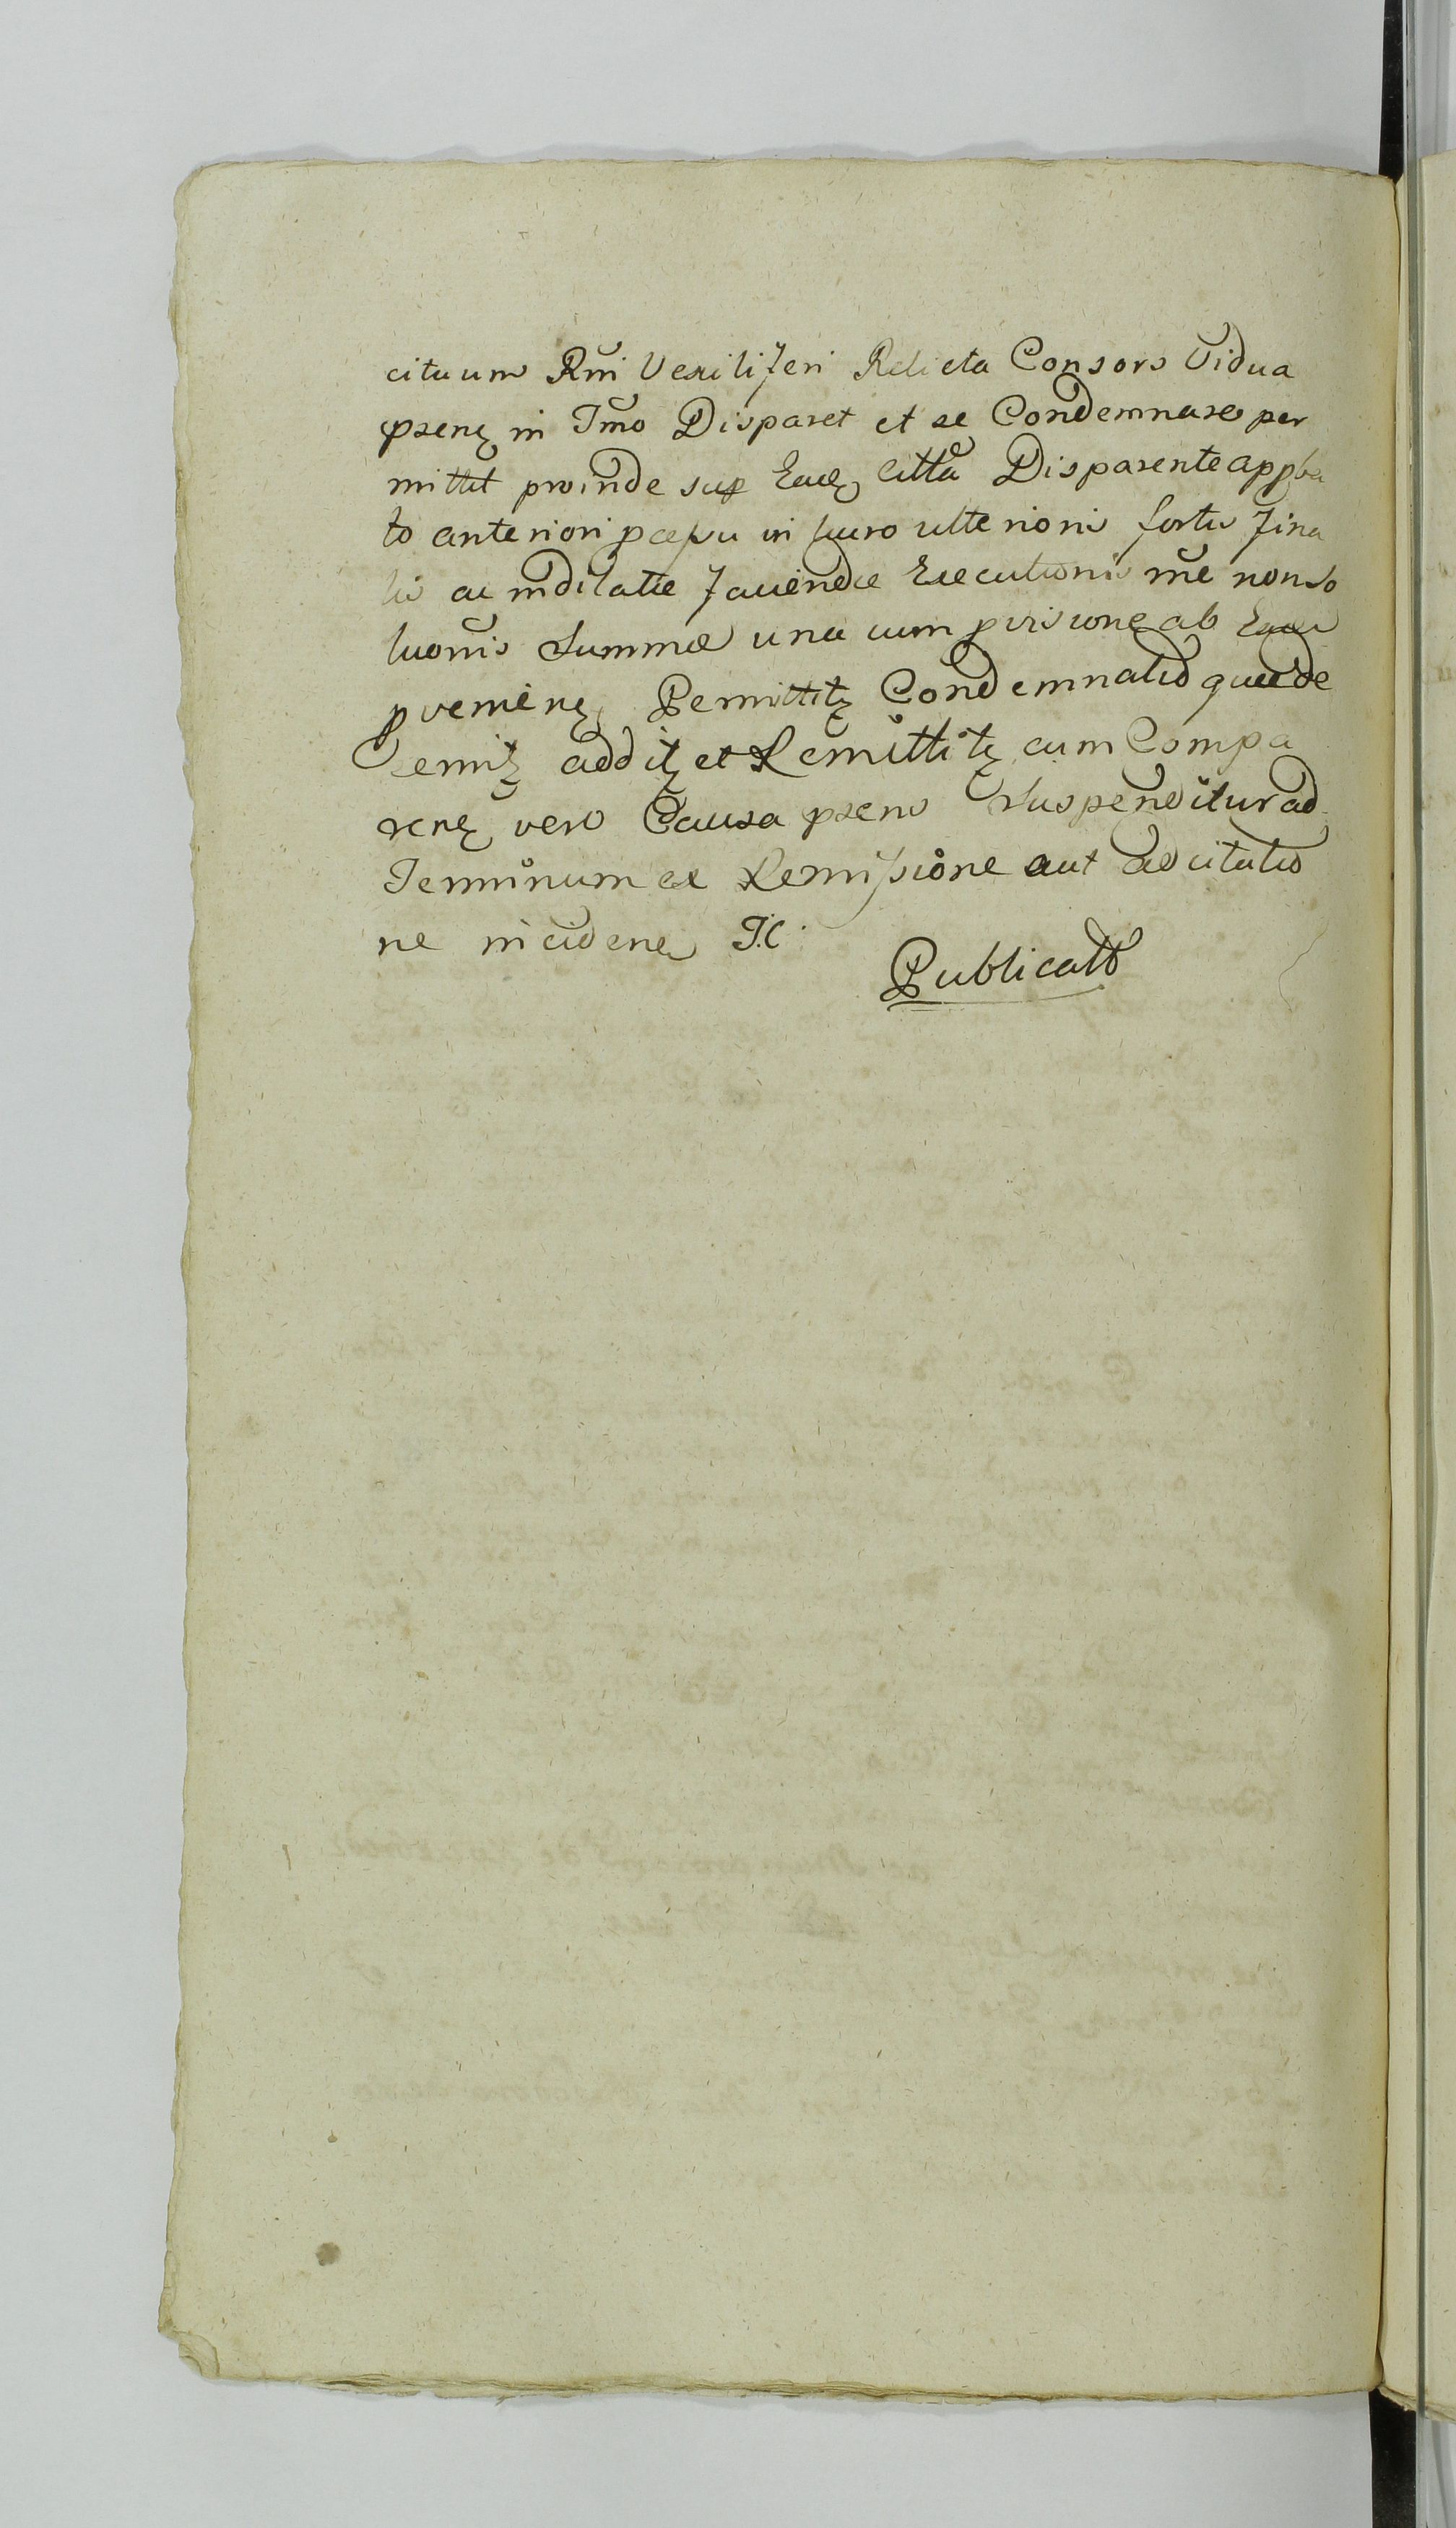 cituum Rm̃i Vexiliferi Relicta Consors Vidua
psens in Tm̃o Disparet et se Condemnare per
mittit proinde sup Eade Citta Disparente appba
to anteriori pcessu in lucro ulterioris fortis fina
lis ac indilatæ faciendæ Executionis rñe non so
lutionis Summæ una cum pvisione ab
pveniens Permittitę Condemnatio quæ de
cernitę additę et Remittitę cum Compa
rens vero Causa psens Suspenditur ad
Terminum ex Remissione aut adcitatio
ne inciden T.C.
Publicat